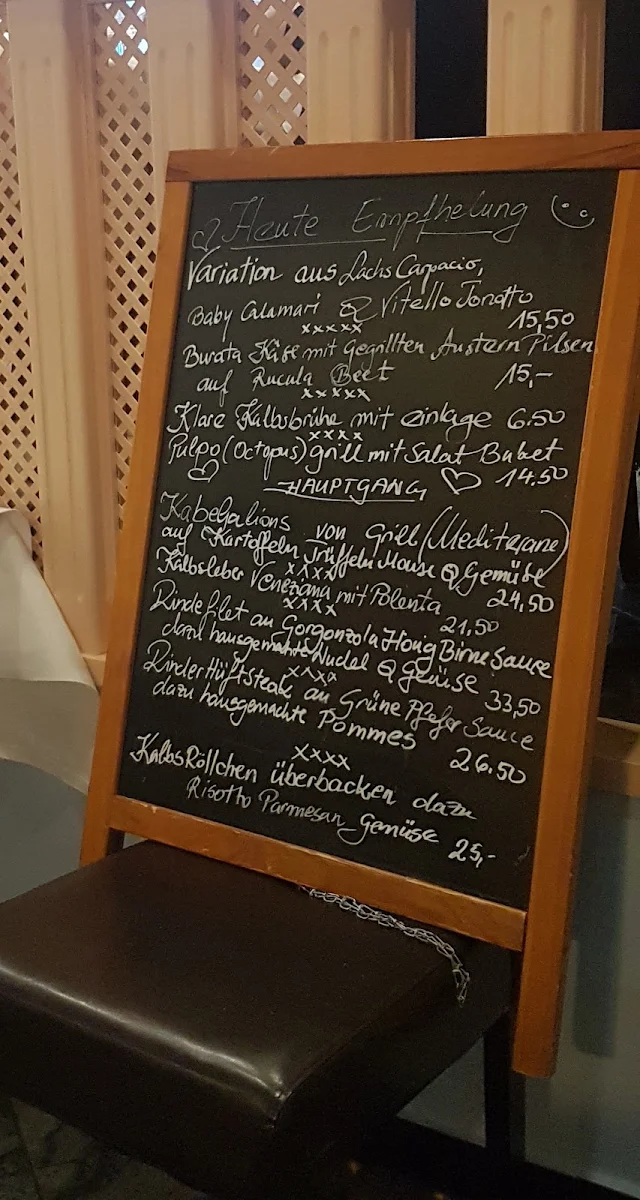 Heute Empfhelung
Variation aus Lachs Carpacio,
Baby Calamari & Vitello Tonatto
15,50
xxxxx
Burata Käse mit gegrillten Austern Pilsen
auf Rucula Beet 15,-
xxxxx
Klare Kalbsbrühe mit einlage 6.50
xxxx
Pulpo (Octopus) grill mit Salat Buket
14.50
HAUPTGANG
Kabeljalions von Grill (Mediterane)
auf Kartoffeln Trüffeln Mouse & Gemüse
xxxx 24,50
Kalbsleber Veneziana mit Polenta
xxxx 21,50
Rindefilet an Gorgonzola Honig Birne Sauce
dazu hausgemachte Nudel & Gemüse 33,50
xxxx
Rinder Hüftsteak an Grüne Pfefer Sauce
dazu hausgemachte Pommes
26.50
xxxx
Kalbs Röllchen überbacken dazu
Risotto Parmesan Gemüse 25,-